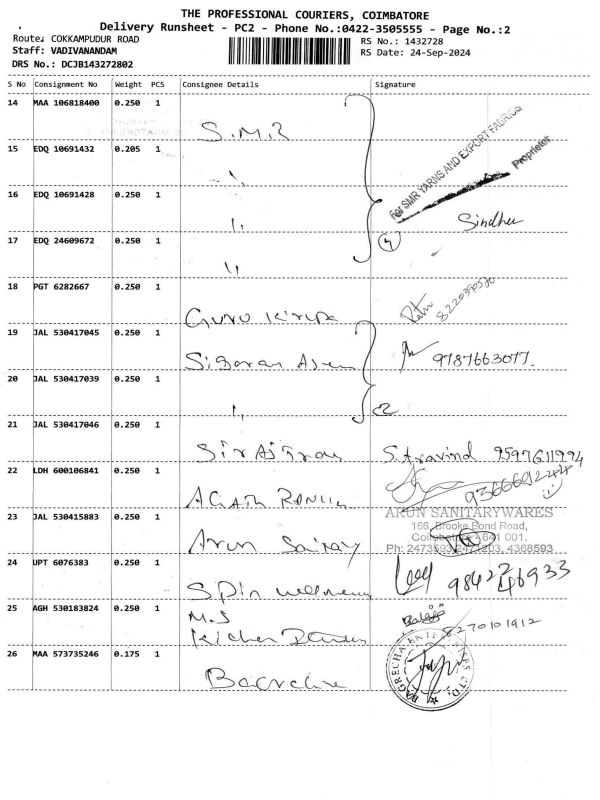 THE PROFESSIONAL COURIERS, COIMBATORE
Delivery Runsheet - PC2 - Phone No.:0422-3505555 - Page No.:2
Route: COKKAMPUDUR ROAD
Staff: VADIVANANDAM
DRS No.: DCJB143272802
RS No.: 1432728
RS Date: 24-Sep-2024
S No Consignment No Weight PCS Consignee Details Signature
14 MAA 106818400 0.250 1 S.M.R
For SMR YARNS AND EXPORT FABRICS
Proprietor
15 EDQ 10691432 0.205 1 "
16 EDQ 10691428 0.250 1 "
Sindhu
17 EDQ 24609672 0.250 1 "
4
18 PGT 6282667 0.250 1 Guru Kirupa
19 JAL 530417045 0.250 1
9787663077.
20 JAL 530417039 0.250 1 "
2
21 JAL 530417046 0.250 1 S. Aravind 9597611994
22 LDH 600106841 0.250 1
9366692244
23 JAL 530415883 0.250 1 Arun
ARUN SANITARYWARES
166, Brooke Bond Road,
641 001.
Ph: 2473593, 2471203, 4366593
24 UPT 6076383 0.250 1 Spin
98422 46933
25 AGH 530183824 0.250 1 M.S
Kichen
Balaji
8270101912
26 MAA 573735246 0.175 1
BAGRECHA ENTERPRISES LTD.